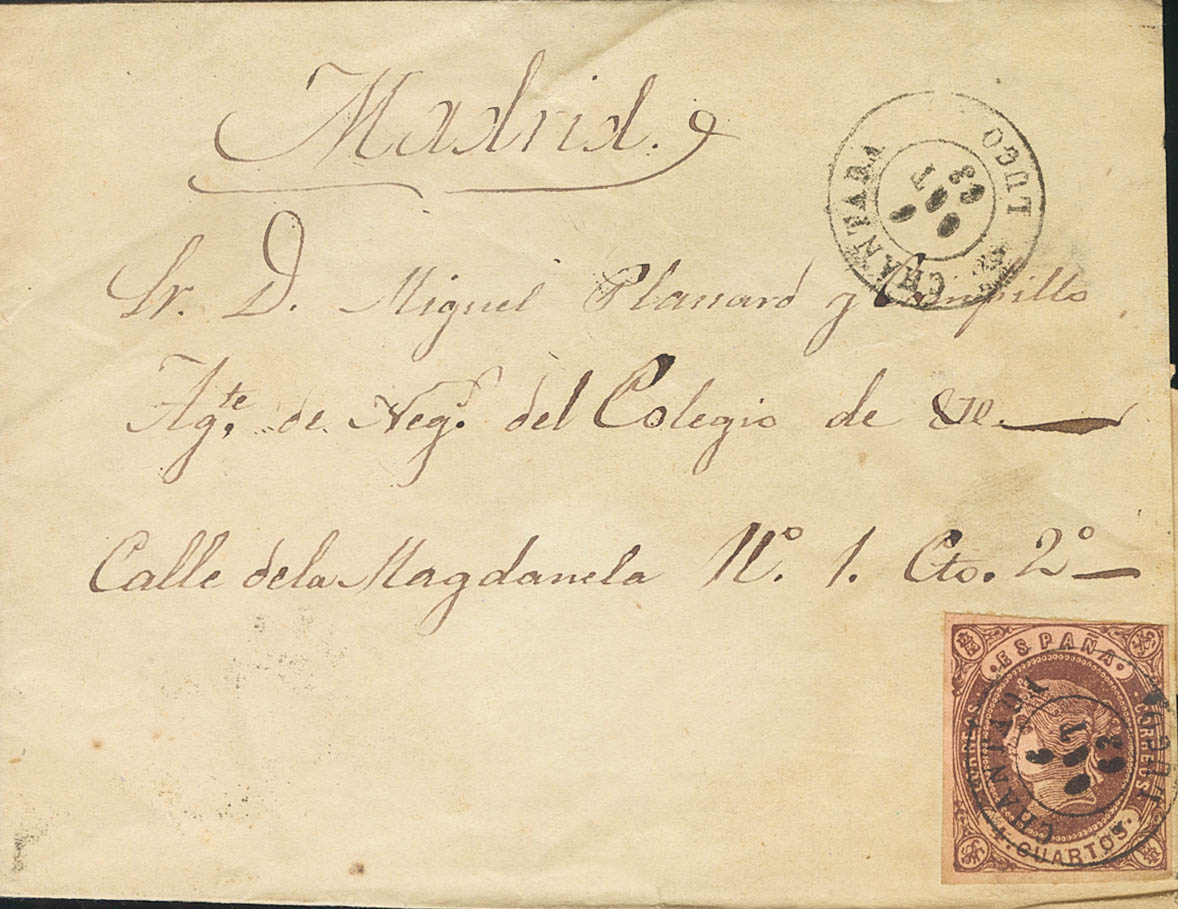 Madrid.
Sr. D. Miguel Planard y Campillo
Agte. de Neg.s del Colegio de
Calle dela Magdanela Nº. 1. Cto. 2º
CHANTADA LUGO
63
ESPAÑA
CORREOS CORREOS
4 CUARTOS.
CHANTADA LUGO
63